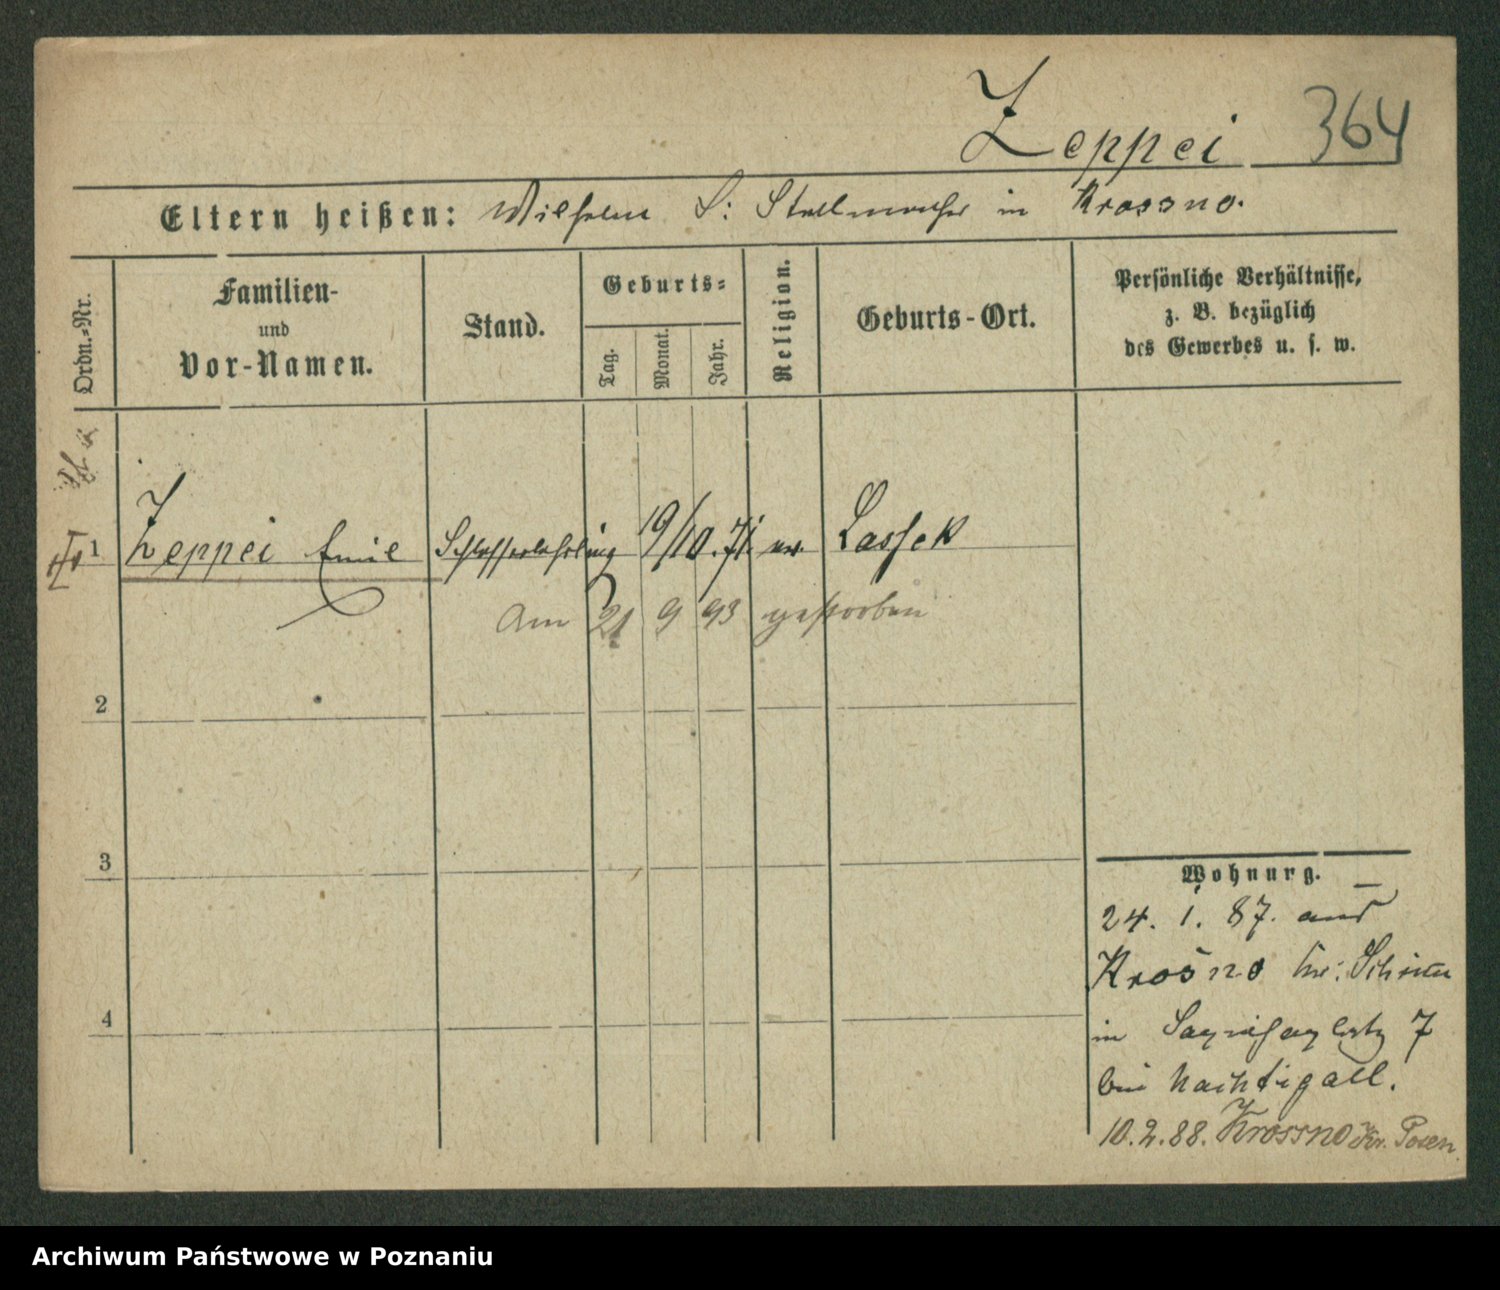 Zeppei 364
Eltern heißen: Wilhelm S: Stellmacher in Krossno.
Ordn.-Nr.
Familien-
und
Vor-Namen.
Stand.
Geburts-
Tag.
Monat.
Jahr.
Religion.
Geburts-Ort.
Persönliche Verhältnisse,
z. B. bezüglich
des Gewerbes u. s. w.
1 Zeppei Emil Schlosserlehrling 19/10. 71. ev. Lassek
Am 21 9 93 gestorben
2
3
4
Wohnung.
24. 1. 87. aus
Krosno
in 7
bei Nachtigall.
10.2.88. Krossno Kr. Posen
Archiwum Państwowe w Poznaniu